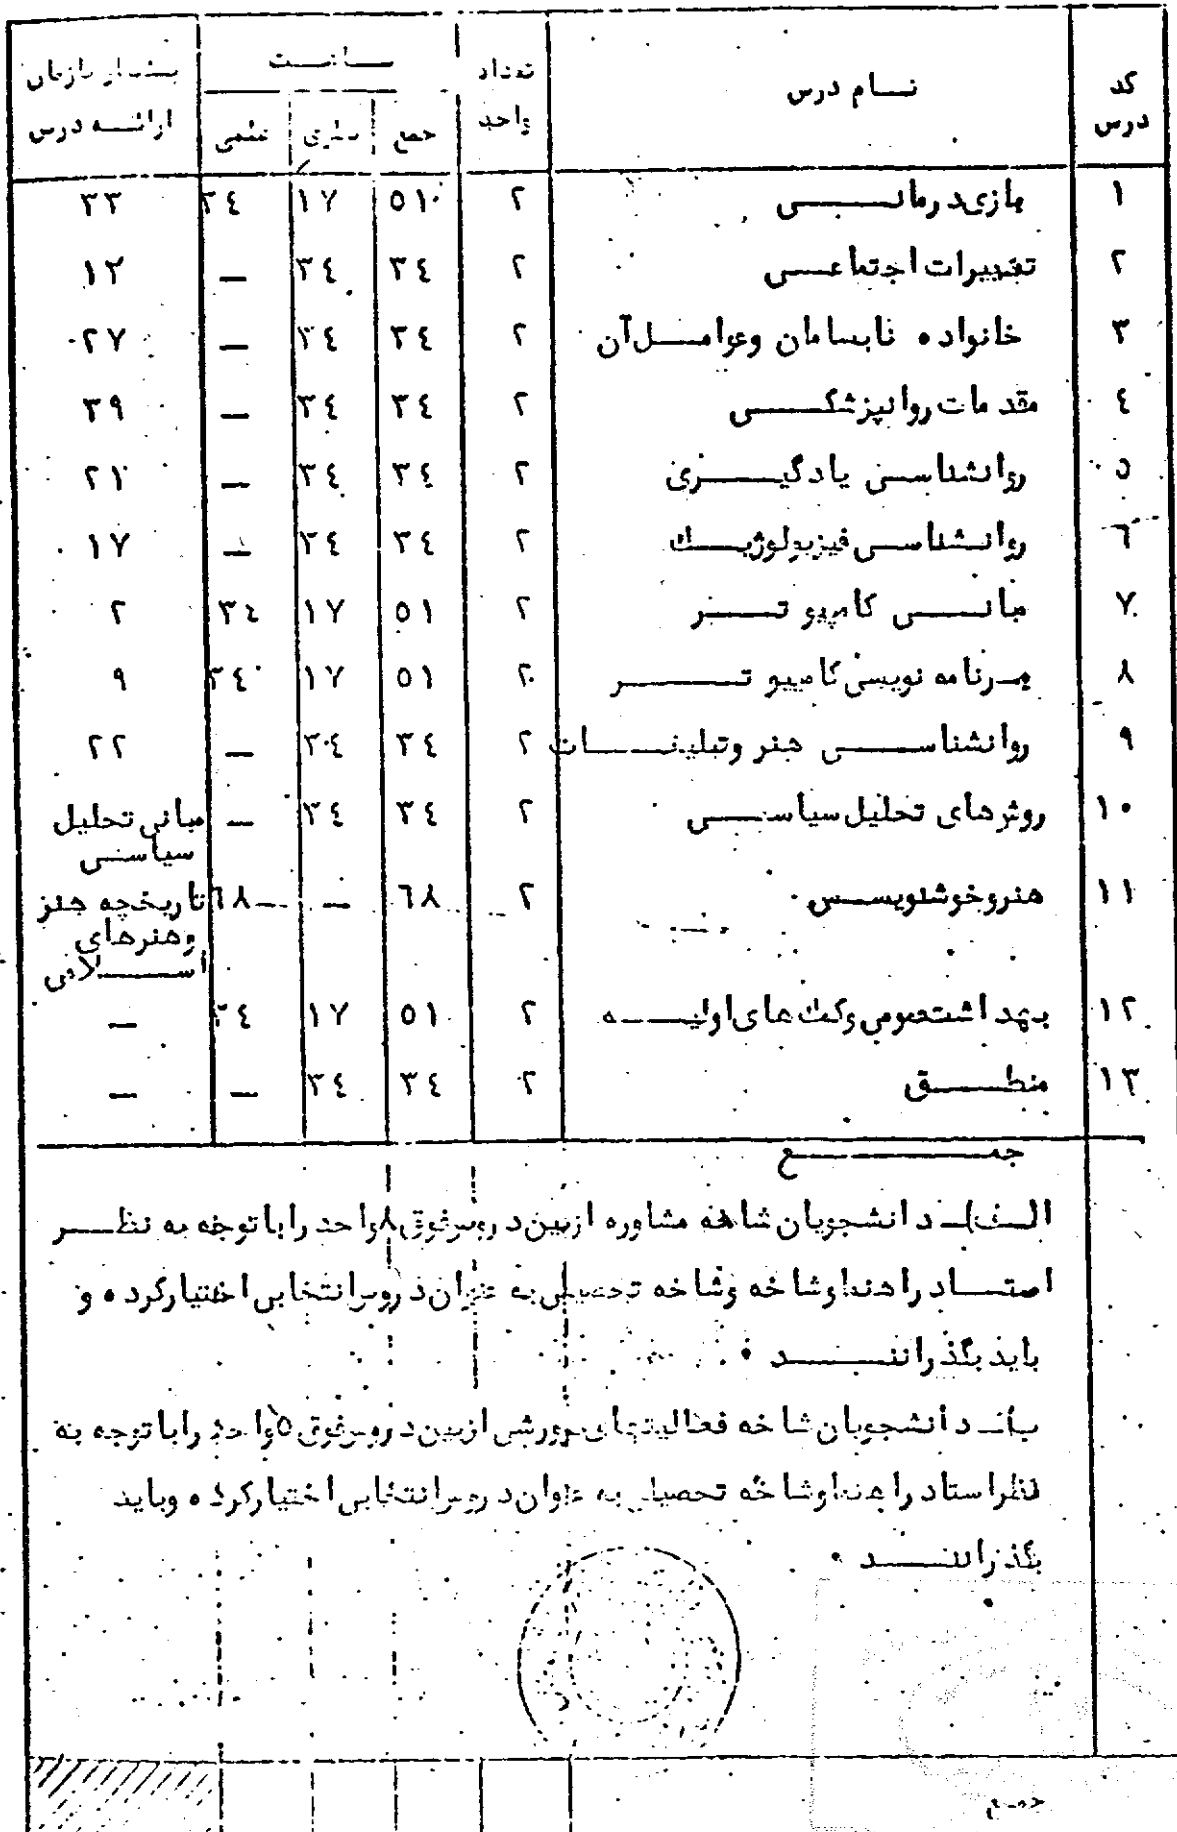 کد درس | نام درس | تعداد واحد | ساعت | پیشنیاز یا زمان ارائه درس
جمع | نظری | عملی
۱ | بازی درمانی | ۲ | ۵۱ | ۱۷ | ۳۴ | ۳۳
۲ | تغییرات اجتماعی | ۲ | ۳۴ | ۳۴ | — | ۱۲
۳ | خانواده نابسامان وعوامل آن | ۲ | ۳۴ | ۳۴ | — | ۲۷
۴ | مقدمات روانپزشکی | ۲ | ۳۴ | ۳۴ | — | ۳۹
۵ | روانشناسی یادگیری | ۲ | ۳۴ | ۳۴ | — | ۲۱
۶ | روانشناسی فیزیولوژیک | ۲ | ۳۴ | ۳۴ | — | ۱۷
۷ | مبانی کامپیوتر | ۲ | ۵۱ | ۱۷ | ۳۴ | ۲
۸ | برنامه نویسی کامپیوتر | ۲ | ۵۱ | ۱۷ | ۳۴ | ۹
۹ | روانشناسی هنر وتبلیغات | ۲ | ۳۴ | ۳۴ | — | ۲۲
۱۰ | روشهای تحلیل سیاسی | ۲ | ۳۴ | ۳۴ | — | مبانی تحلیل سیاسی
۱۱ | هنروخوشنویسی | ۲ | ۶۸ | — | ۶۸ | تاریخچه هنر وهنرهای اسلامی
۱۲ | بهداشت عمومی وکمک های اولیه | ۲ | ۵۱ | ۱۷ | ۳۴ | —
۱۳ | منطق | ۲ | ۳۴ | ۳۴ | — | —
جمع
الف) ـ دانشجویان شاخه مشاوره ازبین دروس فوق ۸ واحد را با توجه به نظر
استاد راهنما وشاخه وشاخه تحصیلی به عنوان دروس انتخابی اختیارکرده و
باید بگذرانند .
ب ـ دانشجویان شاخه فعالیتهای پرورشی ازبین دروس فوق ۵ واحد را با توجه به
نظر استاد راهنما وشاخه تحصیلی به عنوان دروس انتخابی اختیارکرده وباید
بگذرانند .
جمع